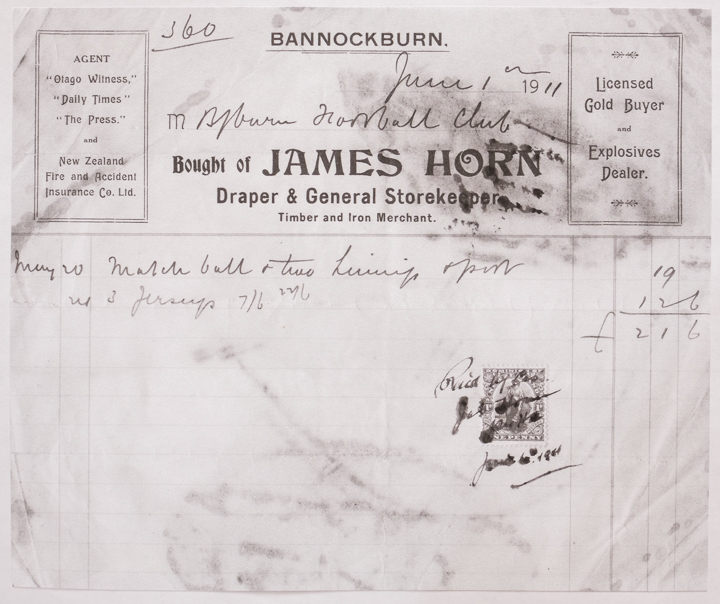 360
BANNOCKBURN.
June 1st 1911
AGENT
"Otago Witness,"
"Daily Times"
"The Press."
and
New Zealand
Fire and Accident
Insurance Co. Ltd.
Licensed
Gold Buyer
and
Explosives
Dealer.
M Bburn Football Club
Bought of JAMES HORN
Draper & General Storekeeper,
Timber and Iron Merchant.
May 20 Match ball & two Linings & post 19
24 3 Jerseys 7/6 22/6 1 2 6
£ 2 1 6
Paid by
Jas Horn
ONE PENNY
June 1911